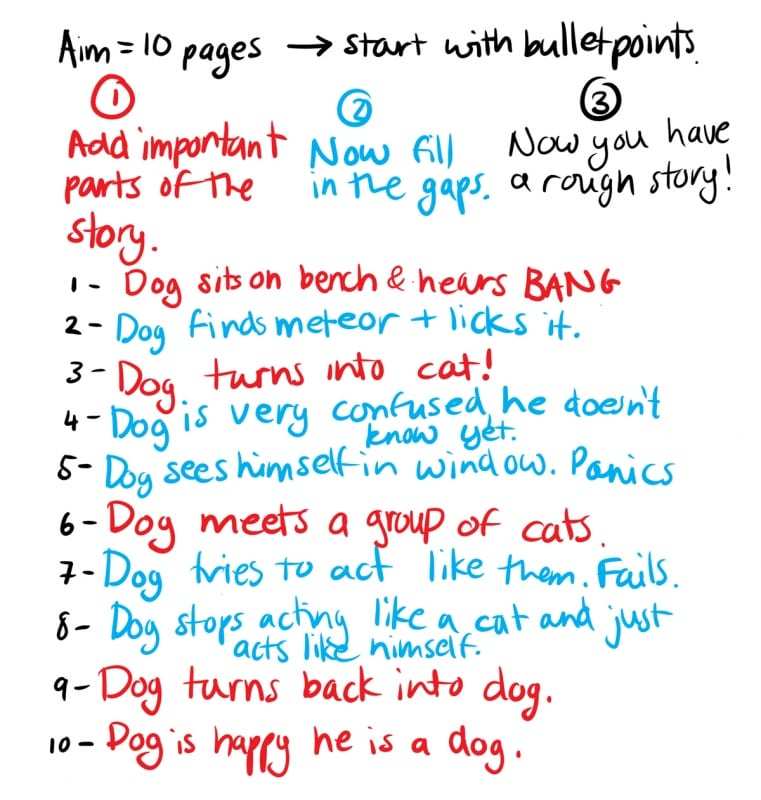 Aim = 10 pages → start with bulletpoints.
①
Add important
parts of the
story.
②
Now fill
in the gaps.
③
Now you have
a rough story!
1 - Dog sits on bench & hears BANG
2 - Dog finds meteor + licks it.
3 - Dog turns into cat!
4 - Dog is very confused, he doesn't
know yet.
5 - Dog sees himself in window. Panics
6 - Dog meets a group of cats.
7 - Dog tries to act like them. Fails.
8 - Dog stops acting like a cat and just
acts like himself.
9 - Dog turns back into dog.
10 - Dog is happy he is a dog.